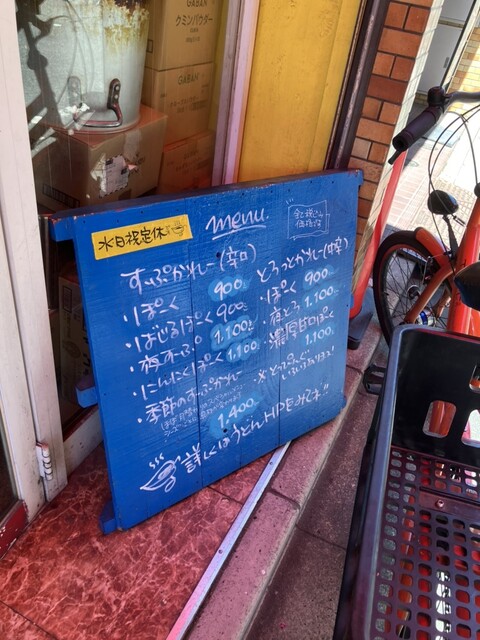 GABAN
クミンパウダー
GABAN
水日祝定休
menu.
全て税込み
価格です
すーぷかれー(辛口)
・ぽーく 900
・ばじるぽーく 900
・夜すーぷ 1,100
・にんにくぽーく 1,100
・季節のすーぷかれー
1,400
とろっとかれー(中辛)
・ぽーく 900
・夜とろ 1,100
・濃厚卵ぽーく
1,100
※とっぴんぐ
いろいろあります!
詳しくはうどんHPをみてネ!!